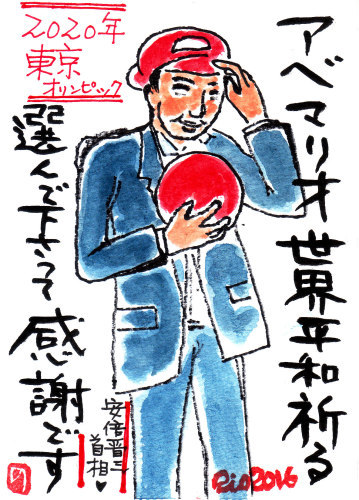 アベマリオ世界平和祈る
2020年
東京
オリンピック
選んで下さって感謝です
安倍晋三
首相
Rio2016